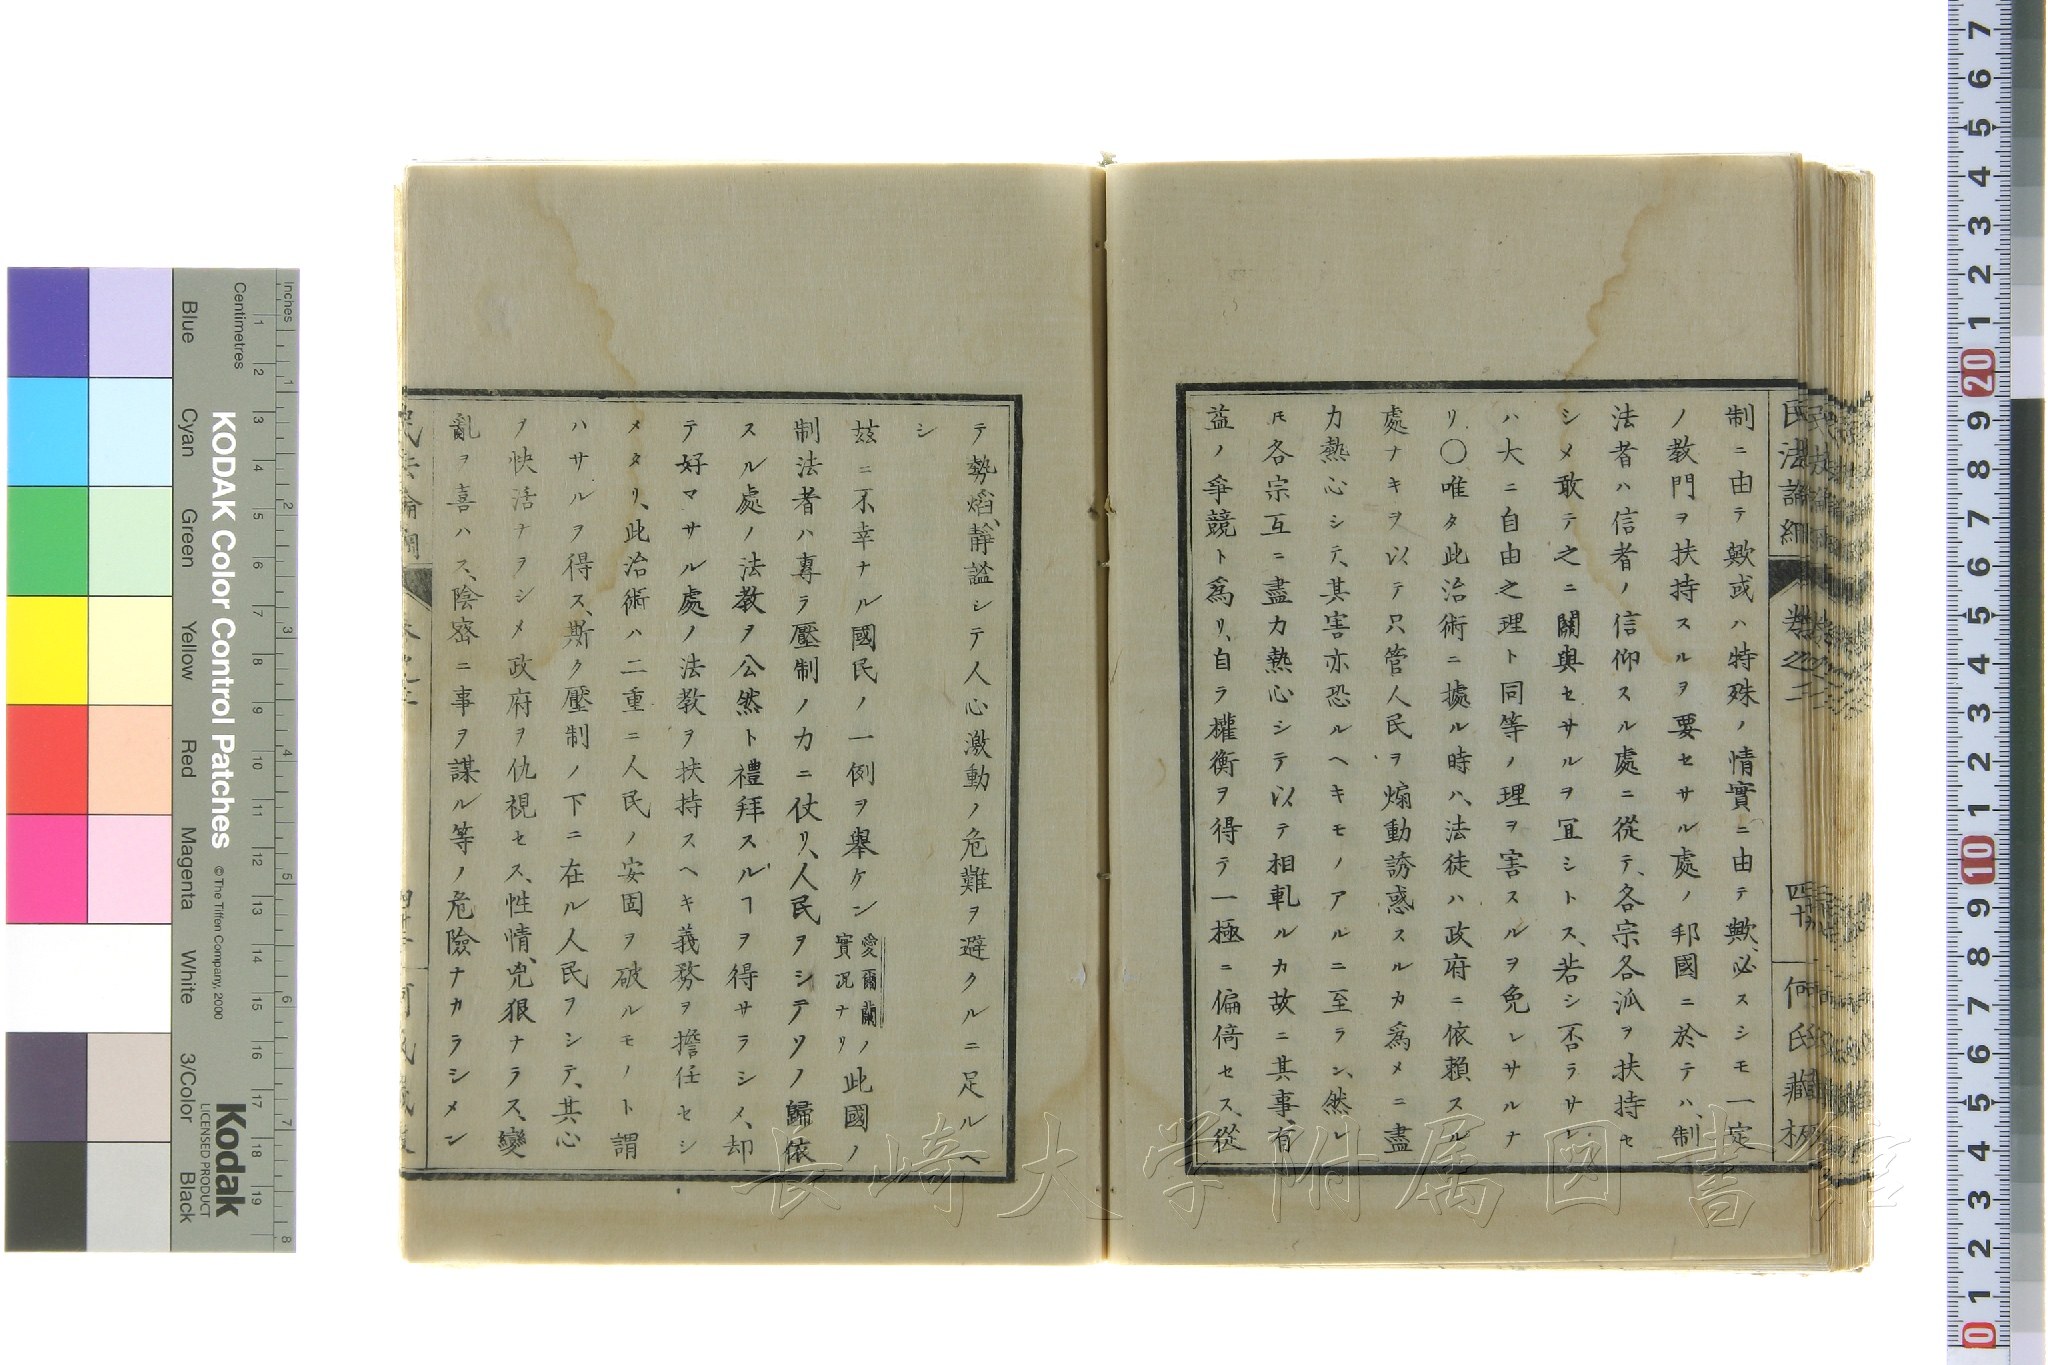 民法論綱 卷之二 四十 何氏藏板
制ニ由テ歟或ハ特殊ノ情實ニ由テ歟、必スシモ一定
ノ教門ヲ扶持スルヲ要セサル處ノ邦國ニ於テハ、制
法者ハ信者ノ信仰スル處ニ從テ、各宗各派ヲ扶持セ
シメ敢テ之ニ關與セサルヲ冝シトス、若シ否ラサレ
ハ大ニ自由之理ト同等ノ理ヲ害スルヲ免レサルナ
リ、〇唯タ此治術ニ據ル時ハ、法徒ハ政府ニ依賴スル
處ナキヲ以テ只管人民ヲ煽動誘惑スルカ爲メニ盡
力熱心シテ、其害亦恐ルヘキモノアルニ至ラン、然レ
𪜈各宗互ニ盡力熱心シテ以テ相軋ルカ故ニ其事、有
益ノ爭競ト爲リ、自ラ權衡ヲ得テ一極ニ偏倚セス、從
テ勢焰、靜謐シテ人心激動ノ危難ヲ避クルニ足ルヘ
シ
玆ニ不幸ナル國民ノ一例ヲ舉ケン 愛爾蘭ノ
實況ナリ 此國ノ
制法者ハ專ラ壓制ノ力ニ仗リ、人民ヲシテソノ歸依
スル處ノ法教ヲ公然ト禮拜スルヿヲ得サラシメ、却
テ好マサル處ノ法教ヲ扶持スヘキ義務ヲ擔任セシ
メタリ、此治術ハ二重ニ人民ノ安固ヲ破ルモノト謂
ハサルヲ得ス、斯ク壓制ノ下ニ在ル人民ヲシテ、其心
ヲ快活ナラシメ政府ヲ仇視セス、性情、兇狠ナラス、變
亂ヲ喜ハス、陰密ニ事ヲ謀ル等ノ危險ナカラシメン
長崎大学附属図書館
KODAK Color Control Patches
© The Tiffen Company, 2000
Kodak
LICENSED PRODUCT
Inches
Centimetres
Blue
Cyan
Green
Yellow
Red
Magenta
White
3/Color
Black
1 2 3 4 5 6 7 8 9 10 11 12 13 14 15 16 17 18 19
1 2 3 4 5 6 7 8
7 6 5 4 3 2 1 20 9 8 7 6 5 4 3 2 1 10 9 8 7 6 5 4 3 2 1 0